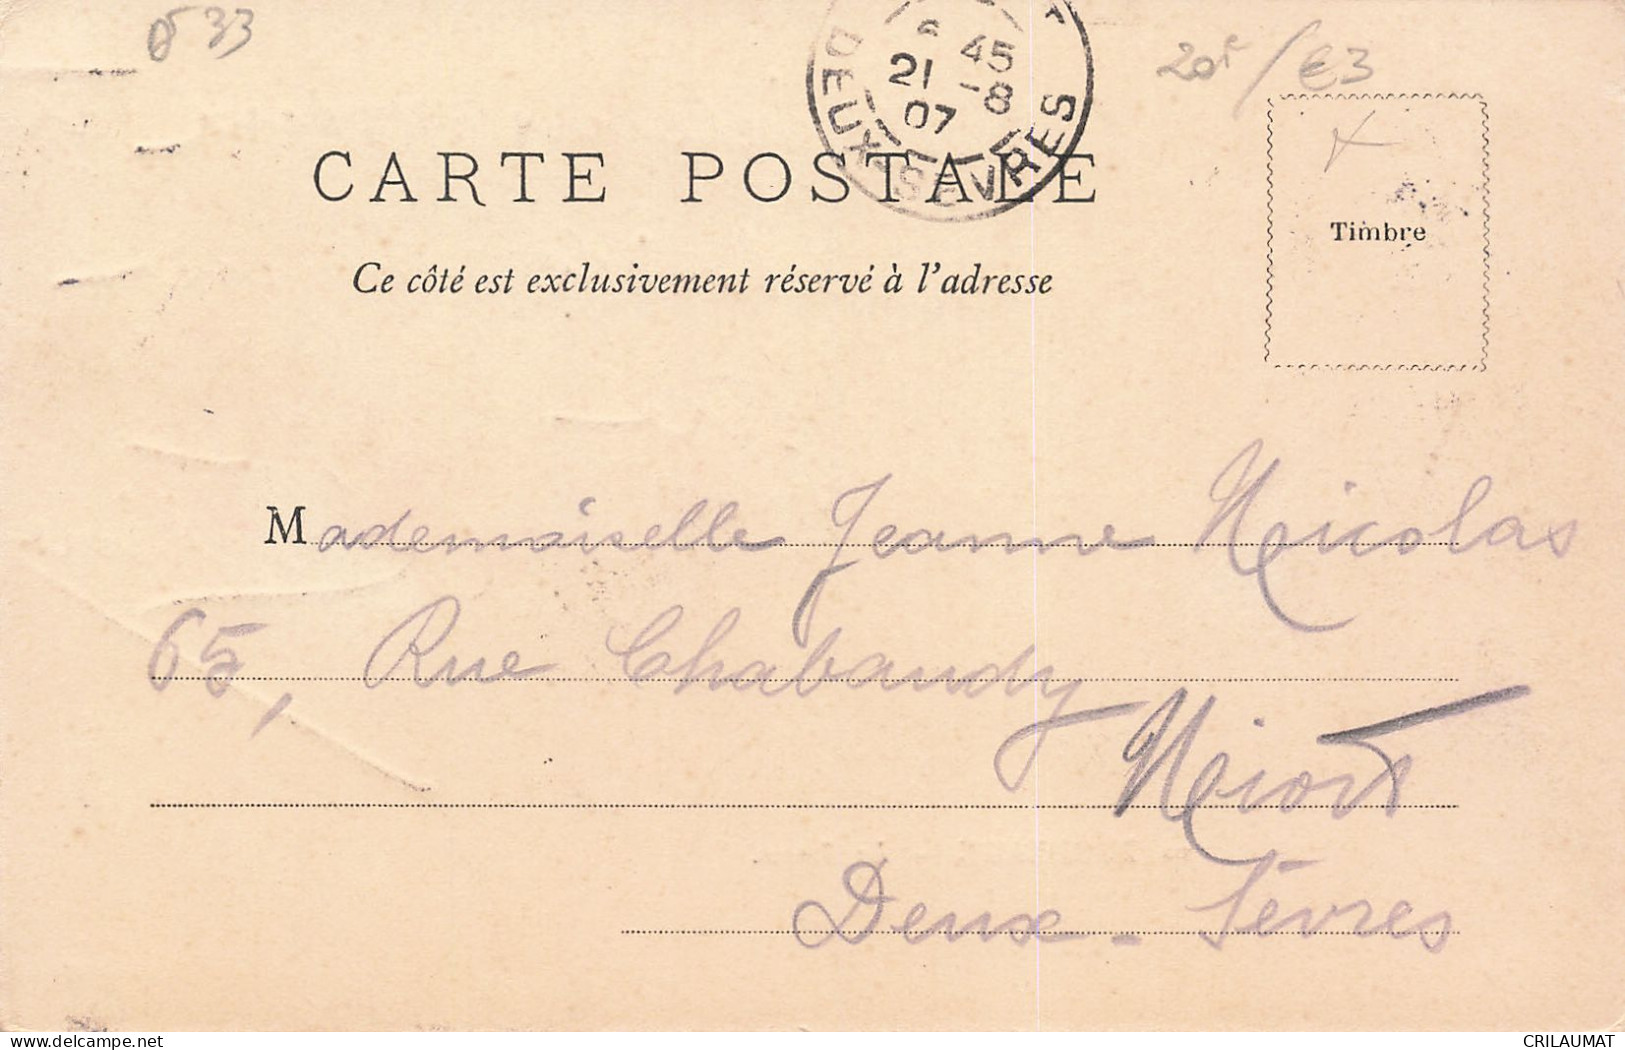 0533
20f / €3
6 45
21 -8
07
DEUX-SEVRES
CARTE POSTALE
Ce côté est exclusivement réservé à l'adresse
Timbre
Mademoiselle Jeanne Nicolas
65, Rue Chabaudy
Niort
Deux-Sèvres
www.delcampe.net
CRILAUMAT